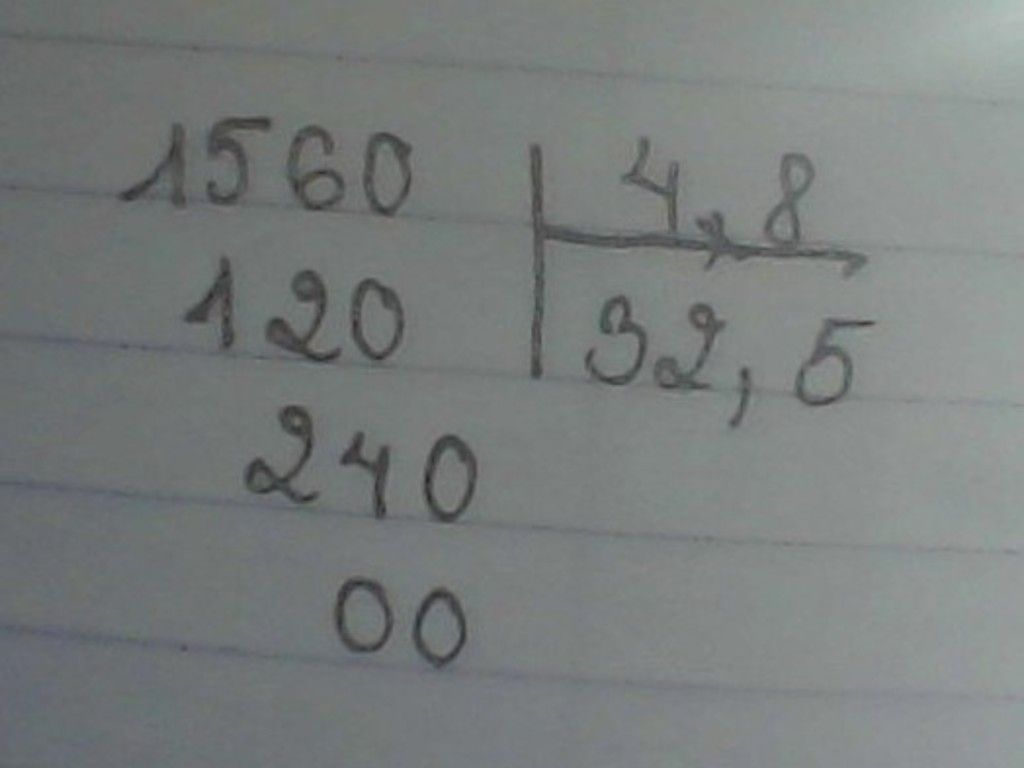 1560 4,8
120 32,5
240
00